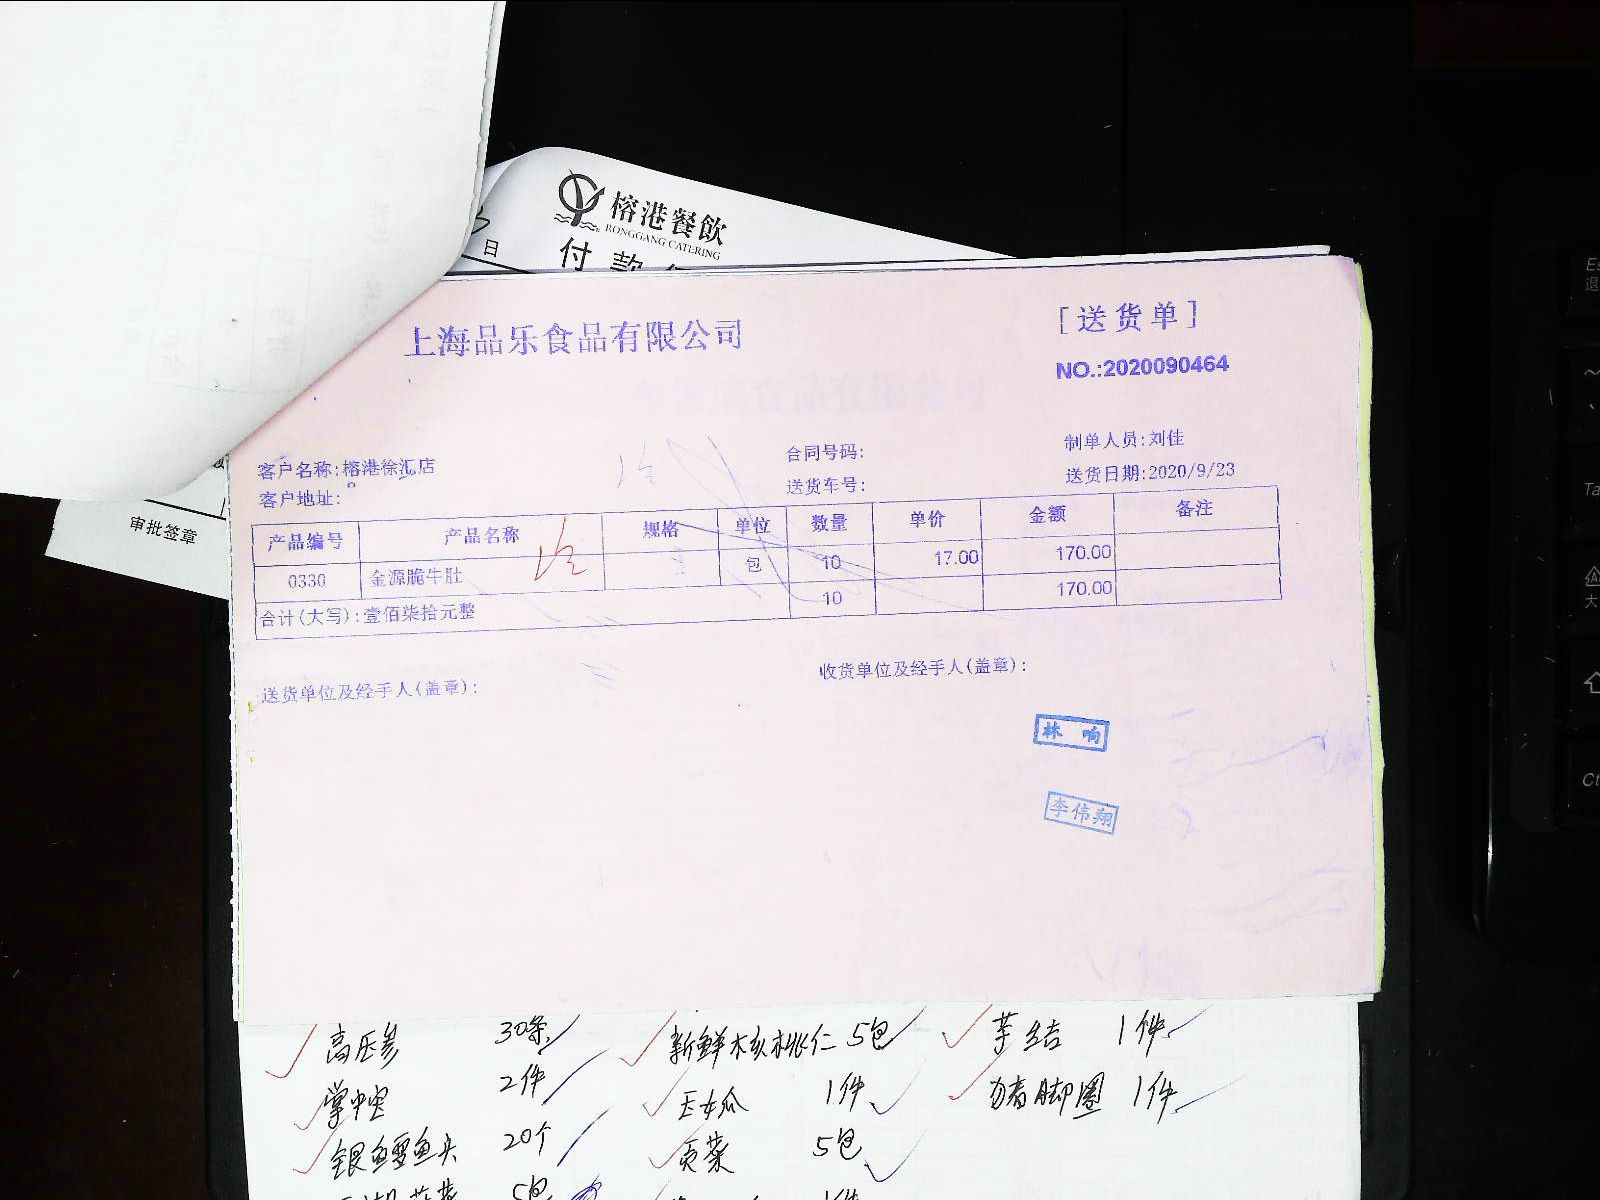 榕港餐飲
RONGGANG CATERING
日
付款
上海品乐食品有限公司
[送货单]
NO.:2020090464
客户名称:榕港徐汇店
合同号码:
制单人员:刘佳
客户地址:
送货车号:
送货日期:2020/9/23
产品编号 产品名称 规格 单位 数量 单价 金额 备注
0330 金源脆牛肚 包 10 17.00 170.00
合计(大写):壹佰柒拾元整 10 170.00
送货单位及经手人(盖章):
收货单位及经手人(盖章):
林响
李伟翔
审批签章
高压参 30条 新鲜核桃仁 5包 芋结 1件
掌中宝 2件 玉女瓜 1件 猪脚圈 1件
银鳕鱼头 20个 贡菜 5包
5包 1件